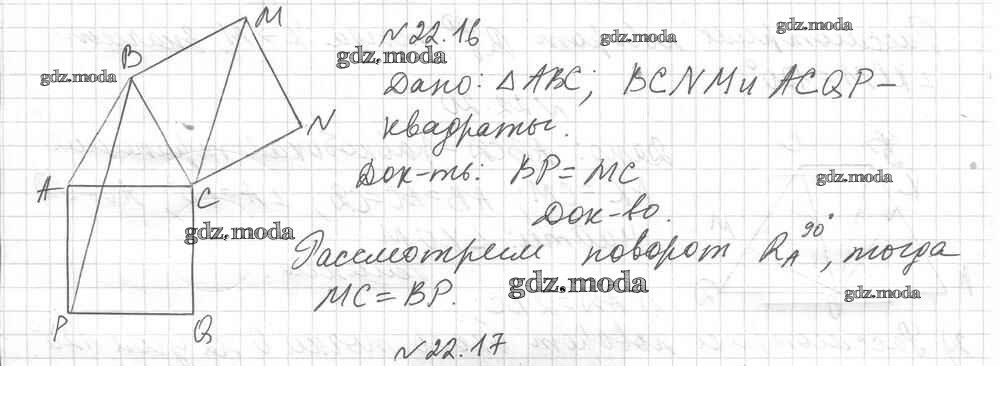 N 22.16
Дано: △ABC; BCNM и ACQP –
квадраты.
Док-ть: BP = MC
Док-во.
Рассмотрим поворот R_A^90°, тогда
MC = BP.
N 22.17
M
B
N
A
C
P
Q
gdz.moda
gdz.moda
gdz.moda
gdz.moda
gdz.moda
gdz.moda
gdz.moda
gdz.moda